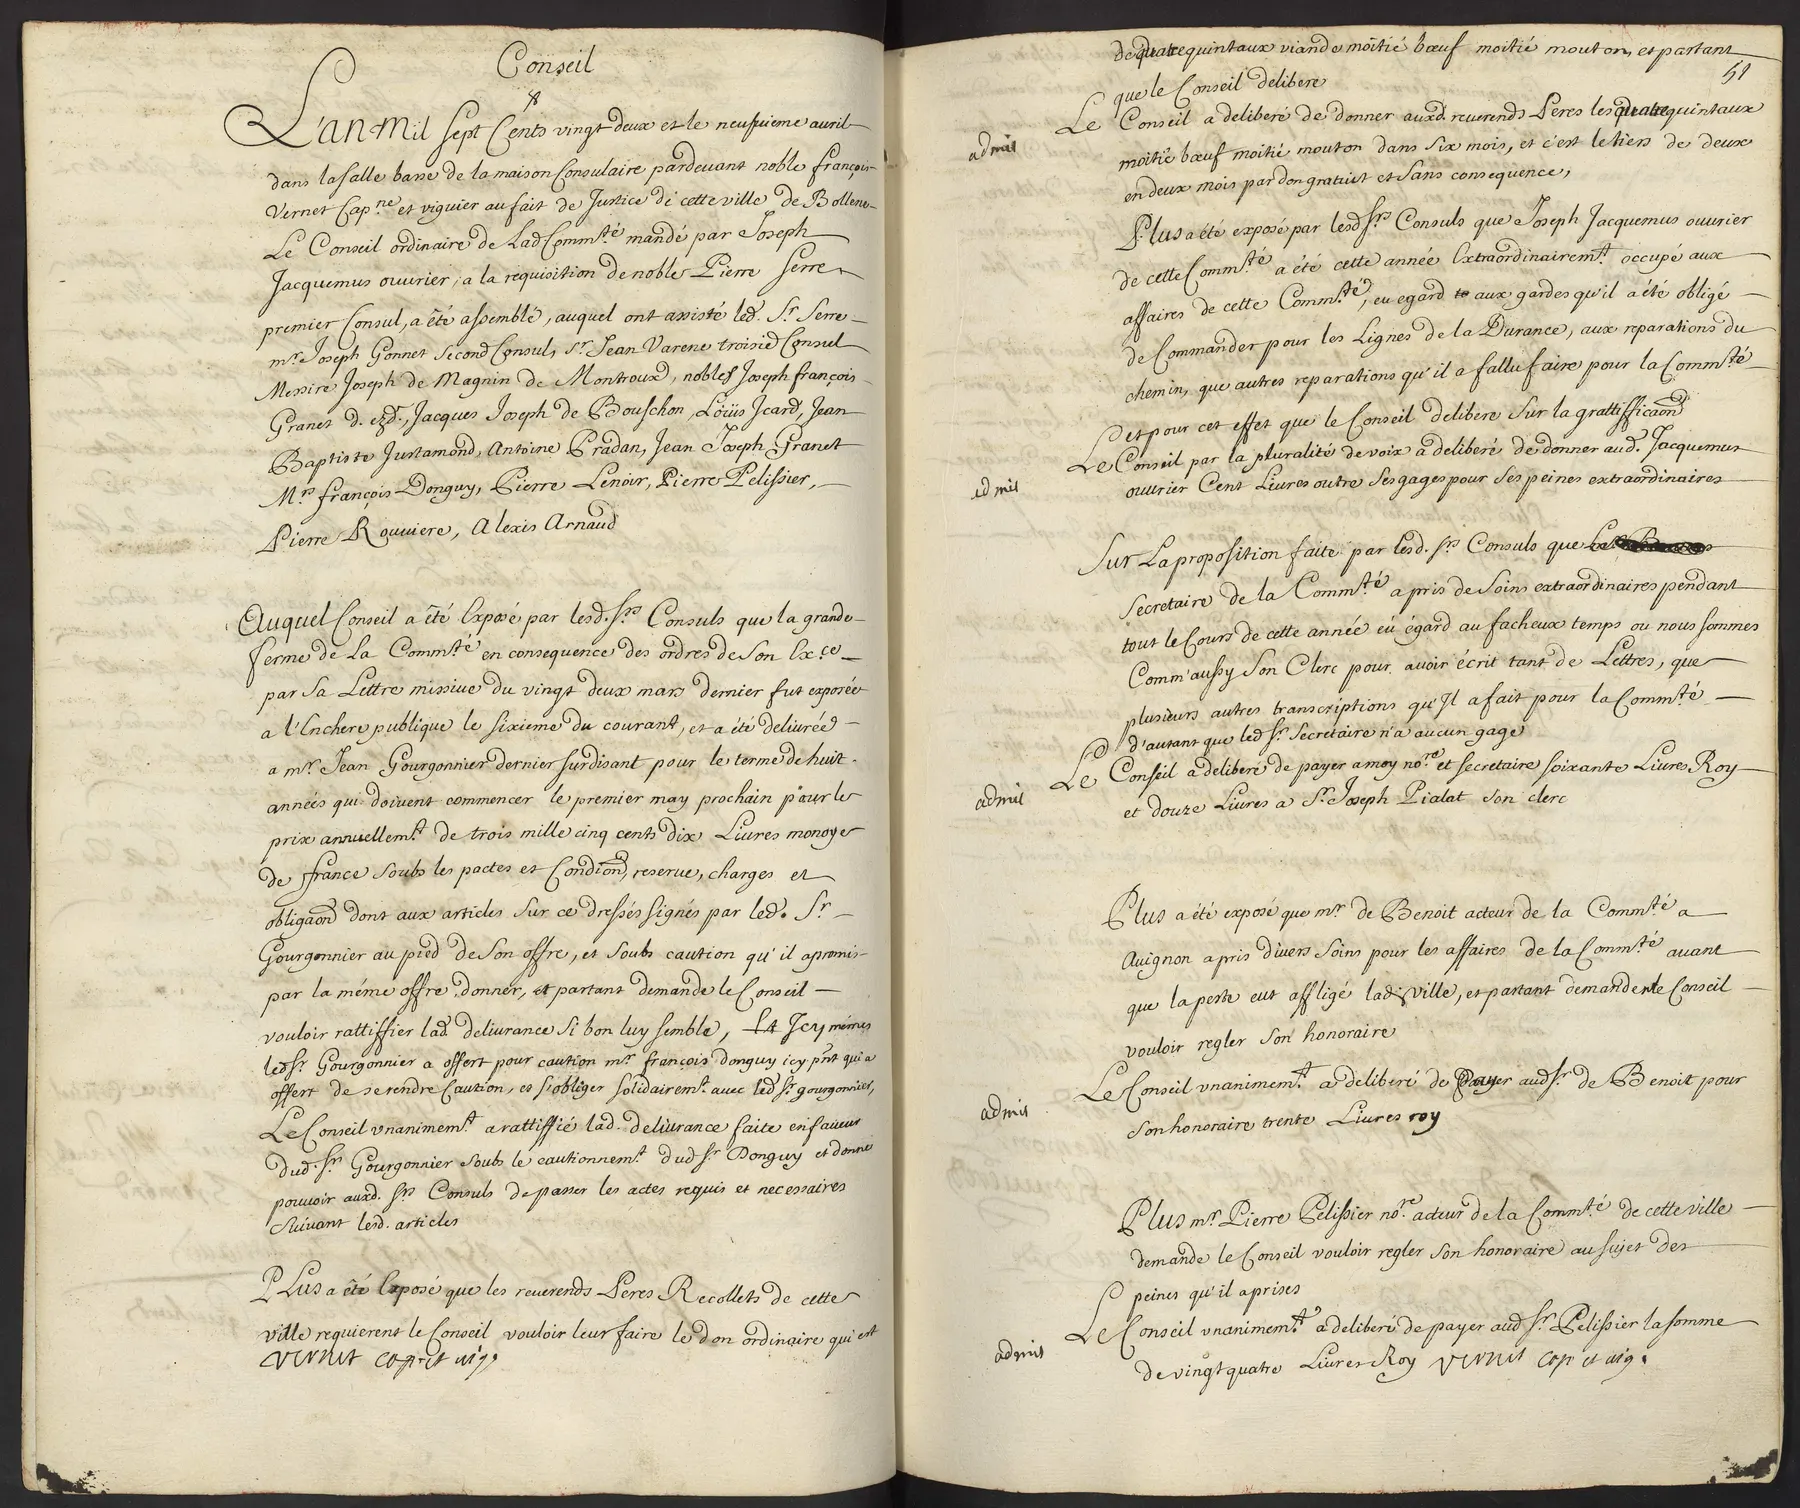 Conseil
L'an Mil sept Cents vingt deux et le neufvieme avril
dans la salle basse de la maison Consulaire pardevant noble françois
Vernet Cap.ne et viguier au fait de Justice de cette ville de Bollene
Le Conseil ordinaire de Lad Comm.té mandé par Joseph
Jacquemus ouvrier, a la requisition de noble Pierre Serre
premier Consul, a été assemblé, auquel ont assisté led. S.r Serre
m.r Joseph Gonnet second Consul, s.r Jean Varene troisie Consul
Messire Joseph de Magnin de Montroux, nobles Joseph françois
Granet d. ez d.r, Jacques Joseph de Bouschon, Loüis Icard, Jean
Baptiste Justamond, Antoine Pradan, Jean Joseph Granet
M.rs François Donguy, Pierre Lenoir, Pierre Pelissier,
Pierre Rouviere, Alexis Arnaud
Auquel Conseil a été Exposé par lesd. s.rs Consuls que la grande
ferme de La Comm.té en consequence des ordres de Son Ex.ce
par Sa Lettre missive du vingt deux mars dernier fut exposée
a l'Enchere publique le sixieme du courant, et a été delivrée
a m.r Jean Gourgonnier dernier surdisant pour le terme de huit
années qui doivent commencer le premier may prochain pour le
prix annuellem.t de trois mille cinq cents dix Livres monoye
de france soubs les pactes et Condiõn, reserve, charges et
obligaõn dont aux articles sur ce dressés signés par led. S.r
Gourgonnier au pied de Son offre, et soubs caution qu'il a promis
par la méme offre donner, et partant demande le Conseil
vouloir rattiffier lad delivrance Si bon luy semble, Et Icy mémes
led s.r Gourgonnier a offert pour caution m.r françois donguy icy pnt qui a
offert de se rendre Caution, et s'obliger solidairem.t avec led s.r gourgonnier,
Le Conseil vnanimem.t a rattiffié lad. delivrance faite en faveur
dud. s.r Gourgonnier soubs le cautionnem.t dud s.r Donguy et donne
pouvoir auxd. s.rs Consuls de passer les actes requis et necessaires
Suivant lesd. articles
Plus a été Exposé que les reverends Peres Recollets de cette
ville requierent le Conseil vouloir leur faire le don ordinaire qui est
vernet cap.ne et vig.
51
de quatre quintaux viande moitié bœuf moitié mouton, et partant
que le Conseil delibere
admis
Le Conseil a deliberé de donner auxd. reverends Peres les quatre quintaux
moitié bœuf moitié mouton dans six mois, et c'est le tiers de deux
en deux mois par don gratuit et sans consequence,
Plus a été exposé par lesd s.rs Consuls que Joseph Jacquemus ouvrier
de cette Comm.té a été cette année Extraordinairem.t occupé aux
affaires de cette Comm.té, eu egard aux gardes qu'il a été obligé
de Commander pour les Lignes de la Durance, aux reparations du
chemin, que autres reparations qu'il a fallu faire pour la Comm.té
et pour cet effet que le Conseil delibere sur la grattiffica͠on
admis
Le Conseil par la pluralité de voix a deliberé de donner aud. Jacquemus
ouvrier Cent Livres outre ses gages pour ses peines extraordinaires
Sur La proposition faite par lesd. s.rs Consuls que
Secretaire de la Comm.té a pris de Soins extraordinaires pendant
tout le Cours de cette année eü égard au facheux temps ou nous sommes
Comm'aussy Son Clerc pour avoir écrit tant de Lettres, que
plusieurs autres transcriptions qu'Il a fait pour la Comm.té
d'autant que led s.r Secretaire n'a aucun gage
admis
Le Conseil a deliberé de payer a moy no.re et secretaire soixante Livres Roy
et douze Livres a S.r Joseph Pialat son clerc
Plus a été exposé que m.r de Benoit acteur de la Comm.té a
Avignon a pris divers soins pour les affaires de la Comm.té avant
que la peste eut affligé lad ville, et partant demande le Conseil
vouloir regler son honoraire
admis
Le Conseil vnanimem.t a deliberé de Payer aud s.r de Benoit pour
son honoraire trente Livres roy
Plus m.r Pierre Pelissier no.re acteur de la Comm.té de cette ville
demande le Conseil vouloir regler son honoraire au sujet des
peines qu'il a prises
admis
Le Conseil vnanimem.t a deliberé de payer aud s.r Pelissier la somme
de vingt quatre Livres Roy vernet cap. et vig.